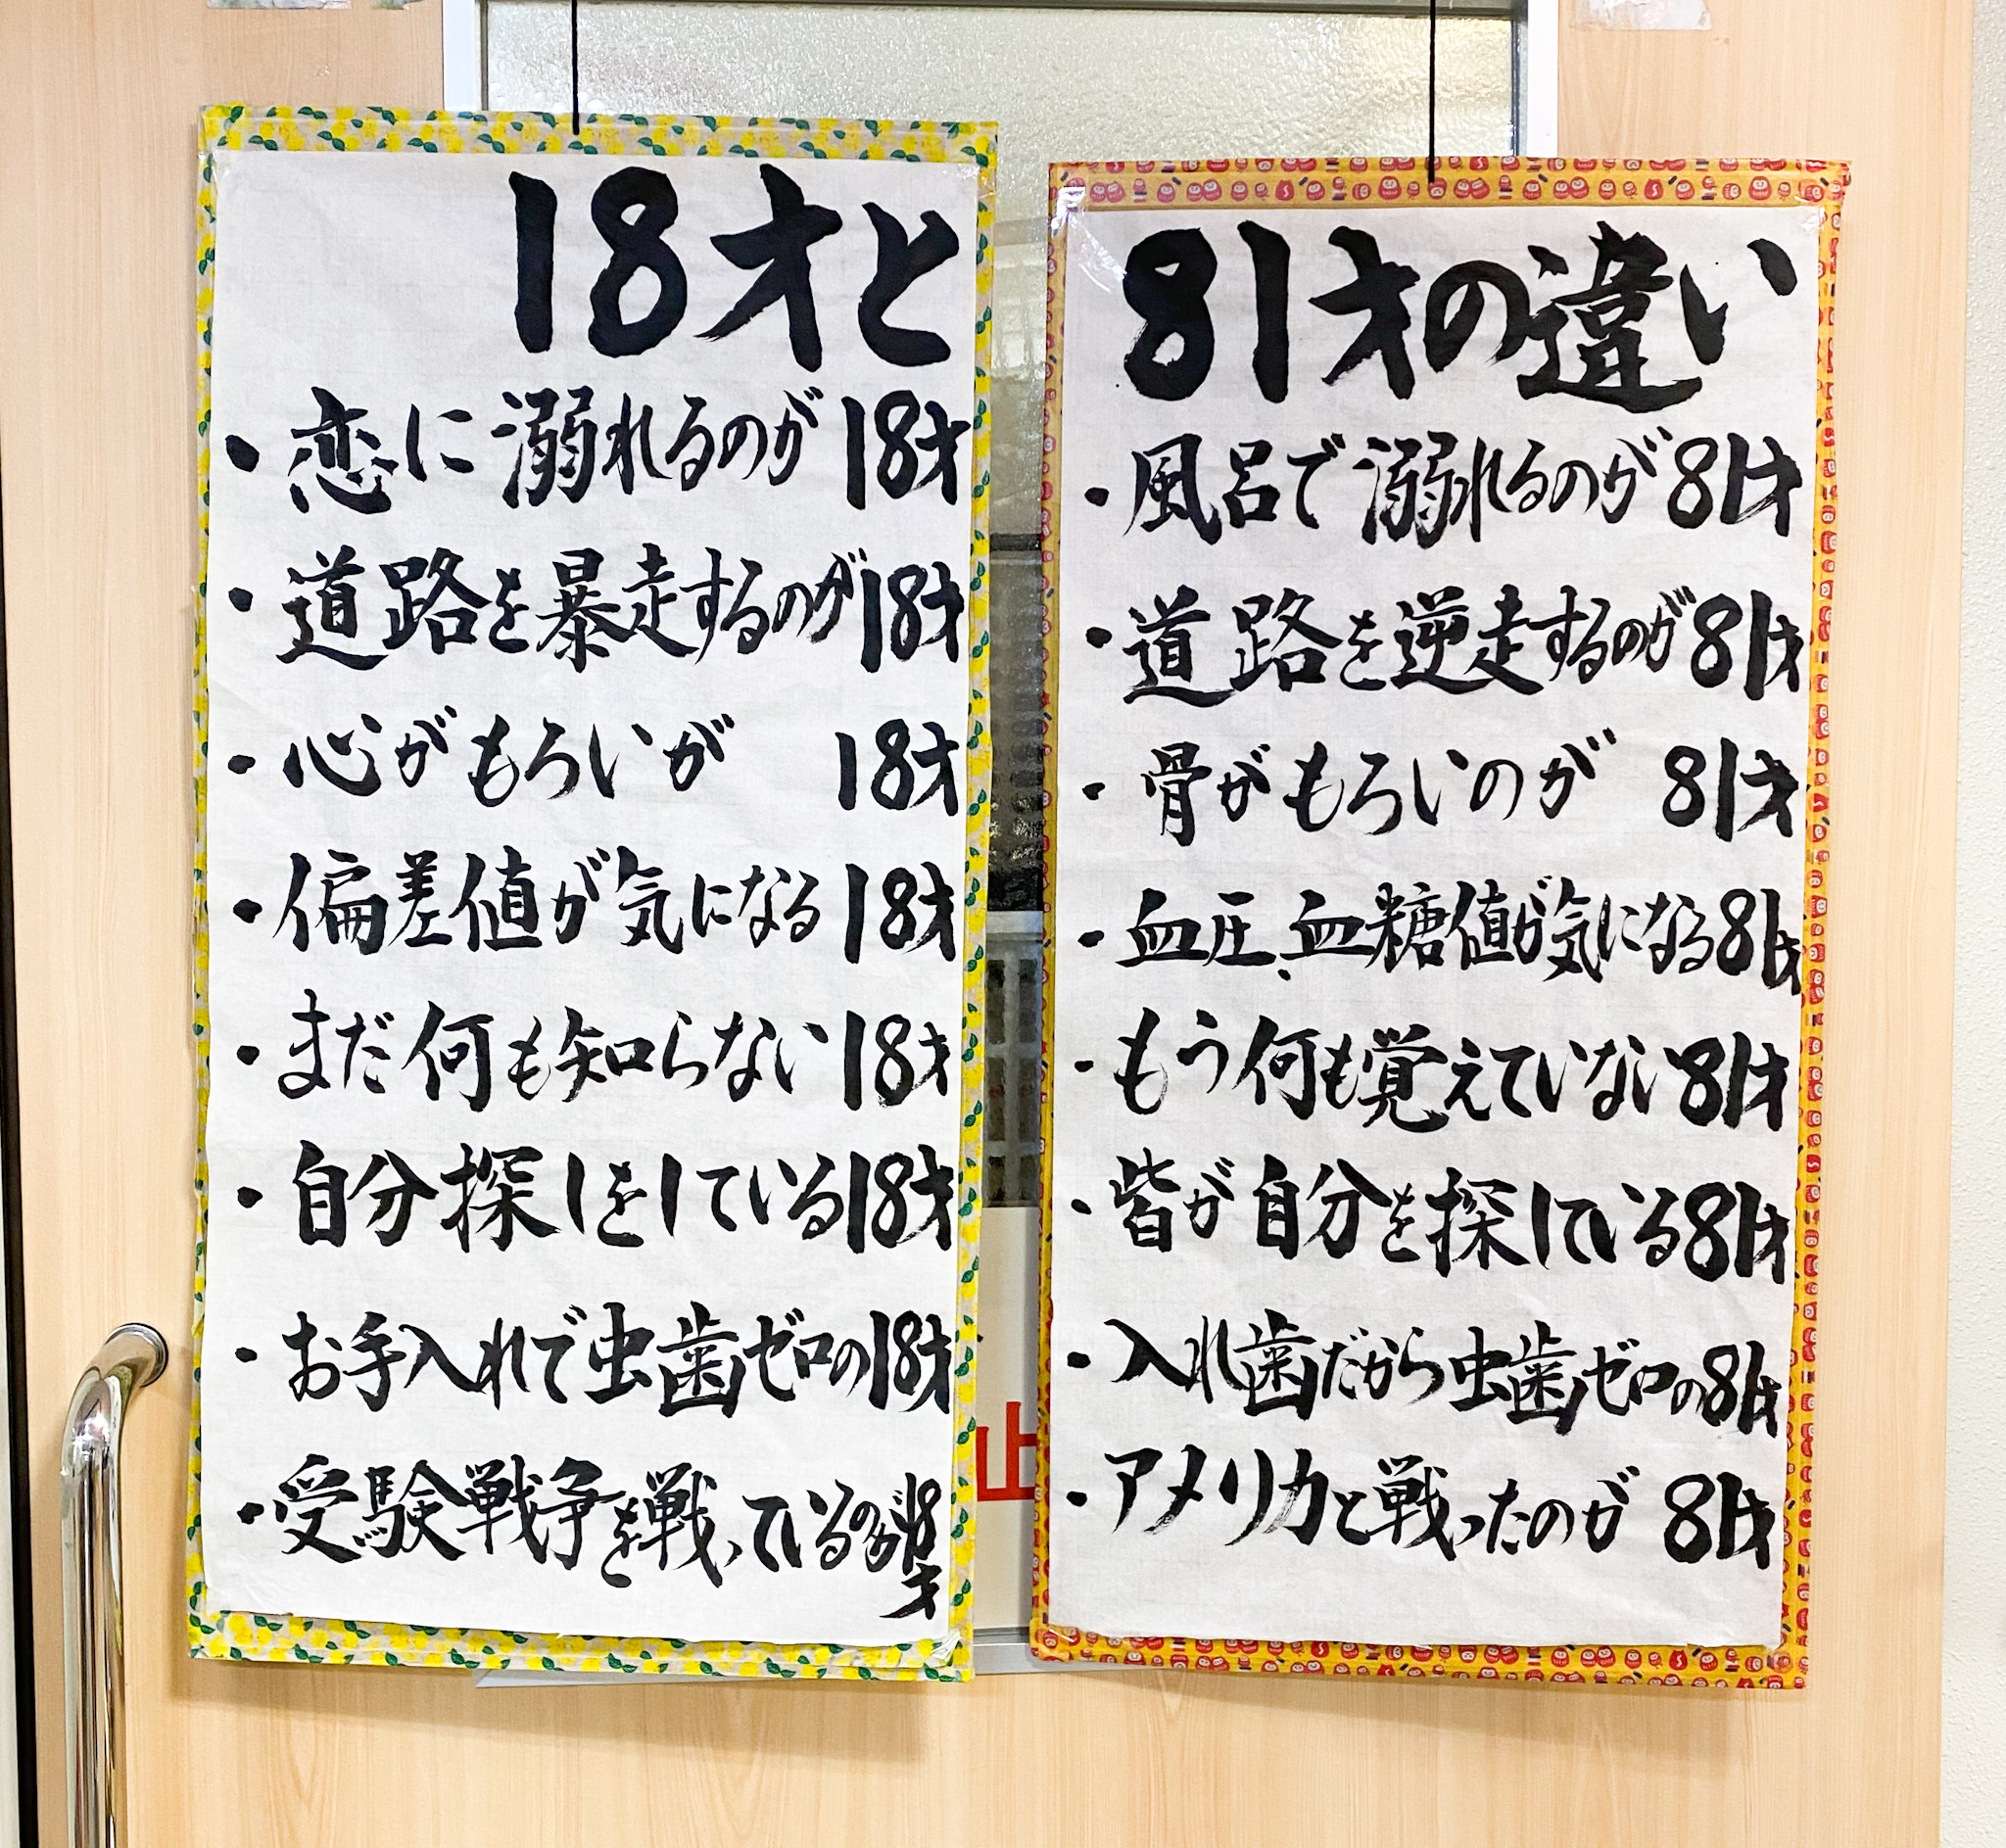 18才と
・恋に溺れるのが18才
・道路を暴走するのが18才
・心がもろいが 18才
・偏差値が気になる18才
・まだ何も知らない18才
・自分探しをしている18才
・お手入れで虫歯ゼロの18才
・受験戦争を戦っているのが18才
81才の違い
・風呂で溺れるのが81才
・道路を逆走するのが81才
・骨がもろいのが 81才
・血圧、血糖値が気になる81才
・もう何も覚えていない81才
・皆が自分を探している81才
・入れ歯だから虫歯ゼロの81才
・アメリカと戦ったのが 81才
止